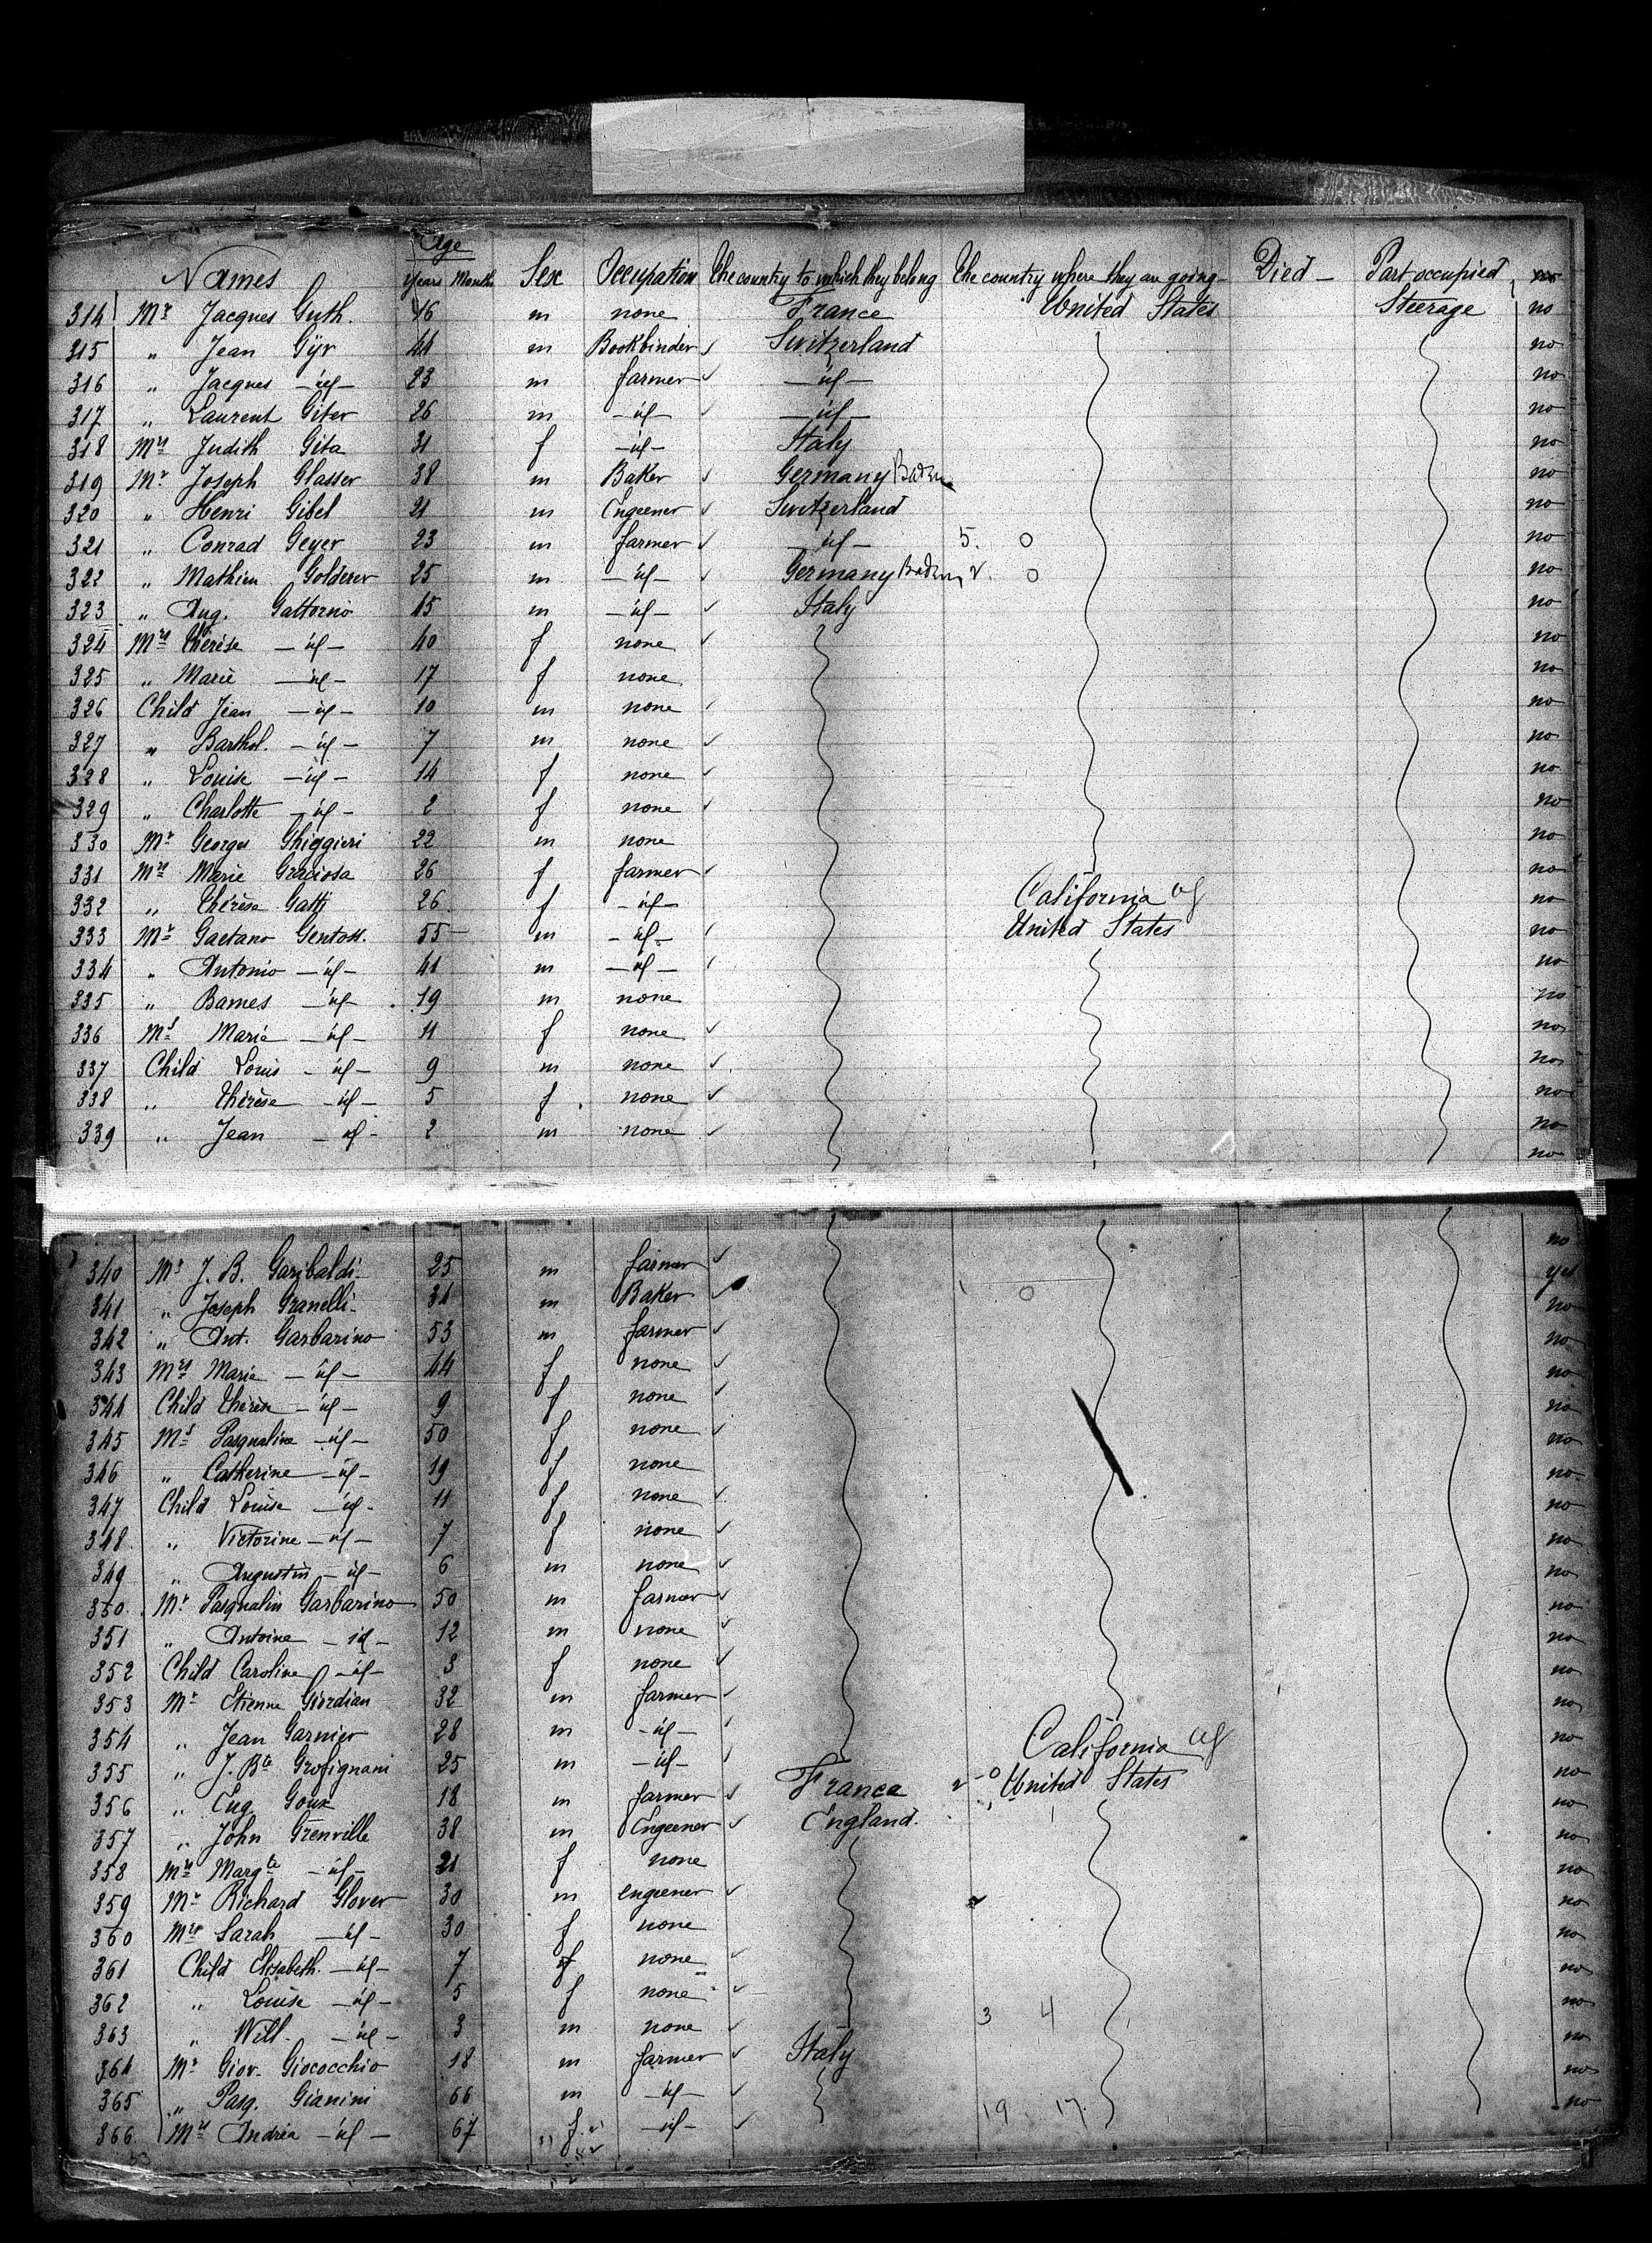 Age
Names Years Months Sex Occupation The country to which they belong The country where they are going Died Part occupied
314 Mr Jacques Guth. 16 m none France United States Steerage no
315 " Jean Gÿr 44 m Bookbinder Switzerland no
316 " Jacques — id — 23 m farmer — id — no
317 " Laurent Giter 26 m — id — — id — no
318 Mrs Judith Gita 31 f — id — Italy no
319 Mr Joseph Glasser 38 m Baker Germany Baden no
320 " Henri Gibel 21 m Engeener Switzerland no
321 " Conrad Geyer 23 m farmer — id — 5. 0 no
322 " Mathieu Golderer 25 m — id — Germany Baden 2. 0 no
323 " Aug. Gattorno 15 m — id — Italy no
324 Mrs Thérèse — id — 40 f none no
325 " Marie — id — 17 f none no
326 Child Jean — id — 10 m none no
327 " Barthol. — id — 7 m none no
328 " Louise — id — 14 f none no
329 " Charlotte — id — 2 f none no
330 Mr Georges Ghiggieri 22 m none no
331 Mrs Marie Graciosa 26 f farmer no
332 " Thérèse Gatti 26 f — id — California of no
333 Mr Gaetano Gentoss. 55 m — id — United States no
334 " Antonio — id — 41 m — id — no
335 " Barnes — id — 19 m none no
336 Ms Maria — id — 11 f none no
337 Child Louis — id — 9 m none no
338 " Thérèse — id — 5 f none no
339 " Jean — id — 2 m none no
no
no
340 Mr J. B. Garibaldi 25 m farmer yes
341 " Joseph Granelli 31 m Baker 1 0 no
342 " Ant. Garbarino 53 m farmer no
343 Mrs Marie — id — 44 f none no
344 Child Thérèse — id — 9 f none no
345 Ms Pasqualine — id — 50 f none no
346 " Catherine — id — 19 f none no
347 Child Louise — id — 11 f none no
348 " Victorine — id — 7 f none no
349 " Augustin — id — 6 m none no
350. Mr Pasqualin Garbarino 50 m farmer no
351 " Antoine — id — 12 m none no
352 Child Caroline — id — 3 f none no
353 Mr Etienne Giordian 32 m farmer no
354 " Jean Garnier 28 m — id — California of no
355 " J. Bte Grofignani 25 m — id — United States no
356 " Eug Goux 18 m farmer France 2 - 0 no
357 " John Grenville 38 m Engeener England. 1 no
358 Mrs Margte — id — 21 f none no
359 Mr Richard Glover 30 m engeener 2 no
360 Mrs Sarah — id — 30 f none no
361 Child Elisabeth. — id — 7 f none no
362 " Louise — id — 5 f none no
363 " Will. — id — 3 m none 3 4 no
364 Mr Giov. Giococchio 18 m farmer Italy no
365 " Pasq. Gianini 66 m — id — 19 17. no
366. Mrs Andréa — id — 67 f — id —